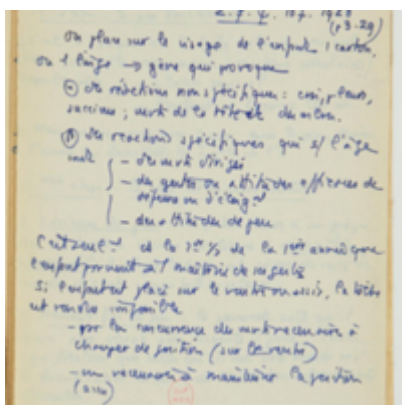 (p3-29)
On place sur le visage de l'enfant 1 carton
ou 1 linge → gêne qui provoque
des réactions non spécifiques : cris, pleurs,
succion ; mvts de la tête et du
des réactions spécifiques qui s/ l'âge
sont - des mvts dirigés
- des gestes ou attitudes efficaces de
défense ou d'
- des attitudes de jeu
C'est de la 1ère année que
l'enfant parvient à maîtriser
Si l'enfant est placé sur le ventre ou assis, la tâche
est rendue impossible
- par la concurrence des mvts nécessaires à
changer de position (sur le ventre)
- ou nécessaires à maintenir la position
(assis)